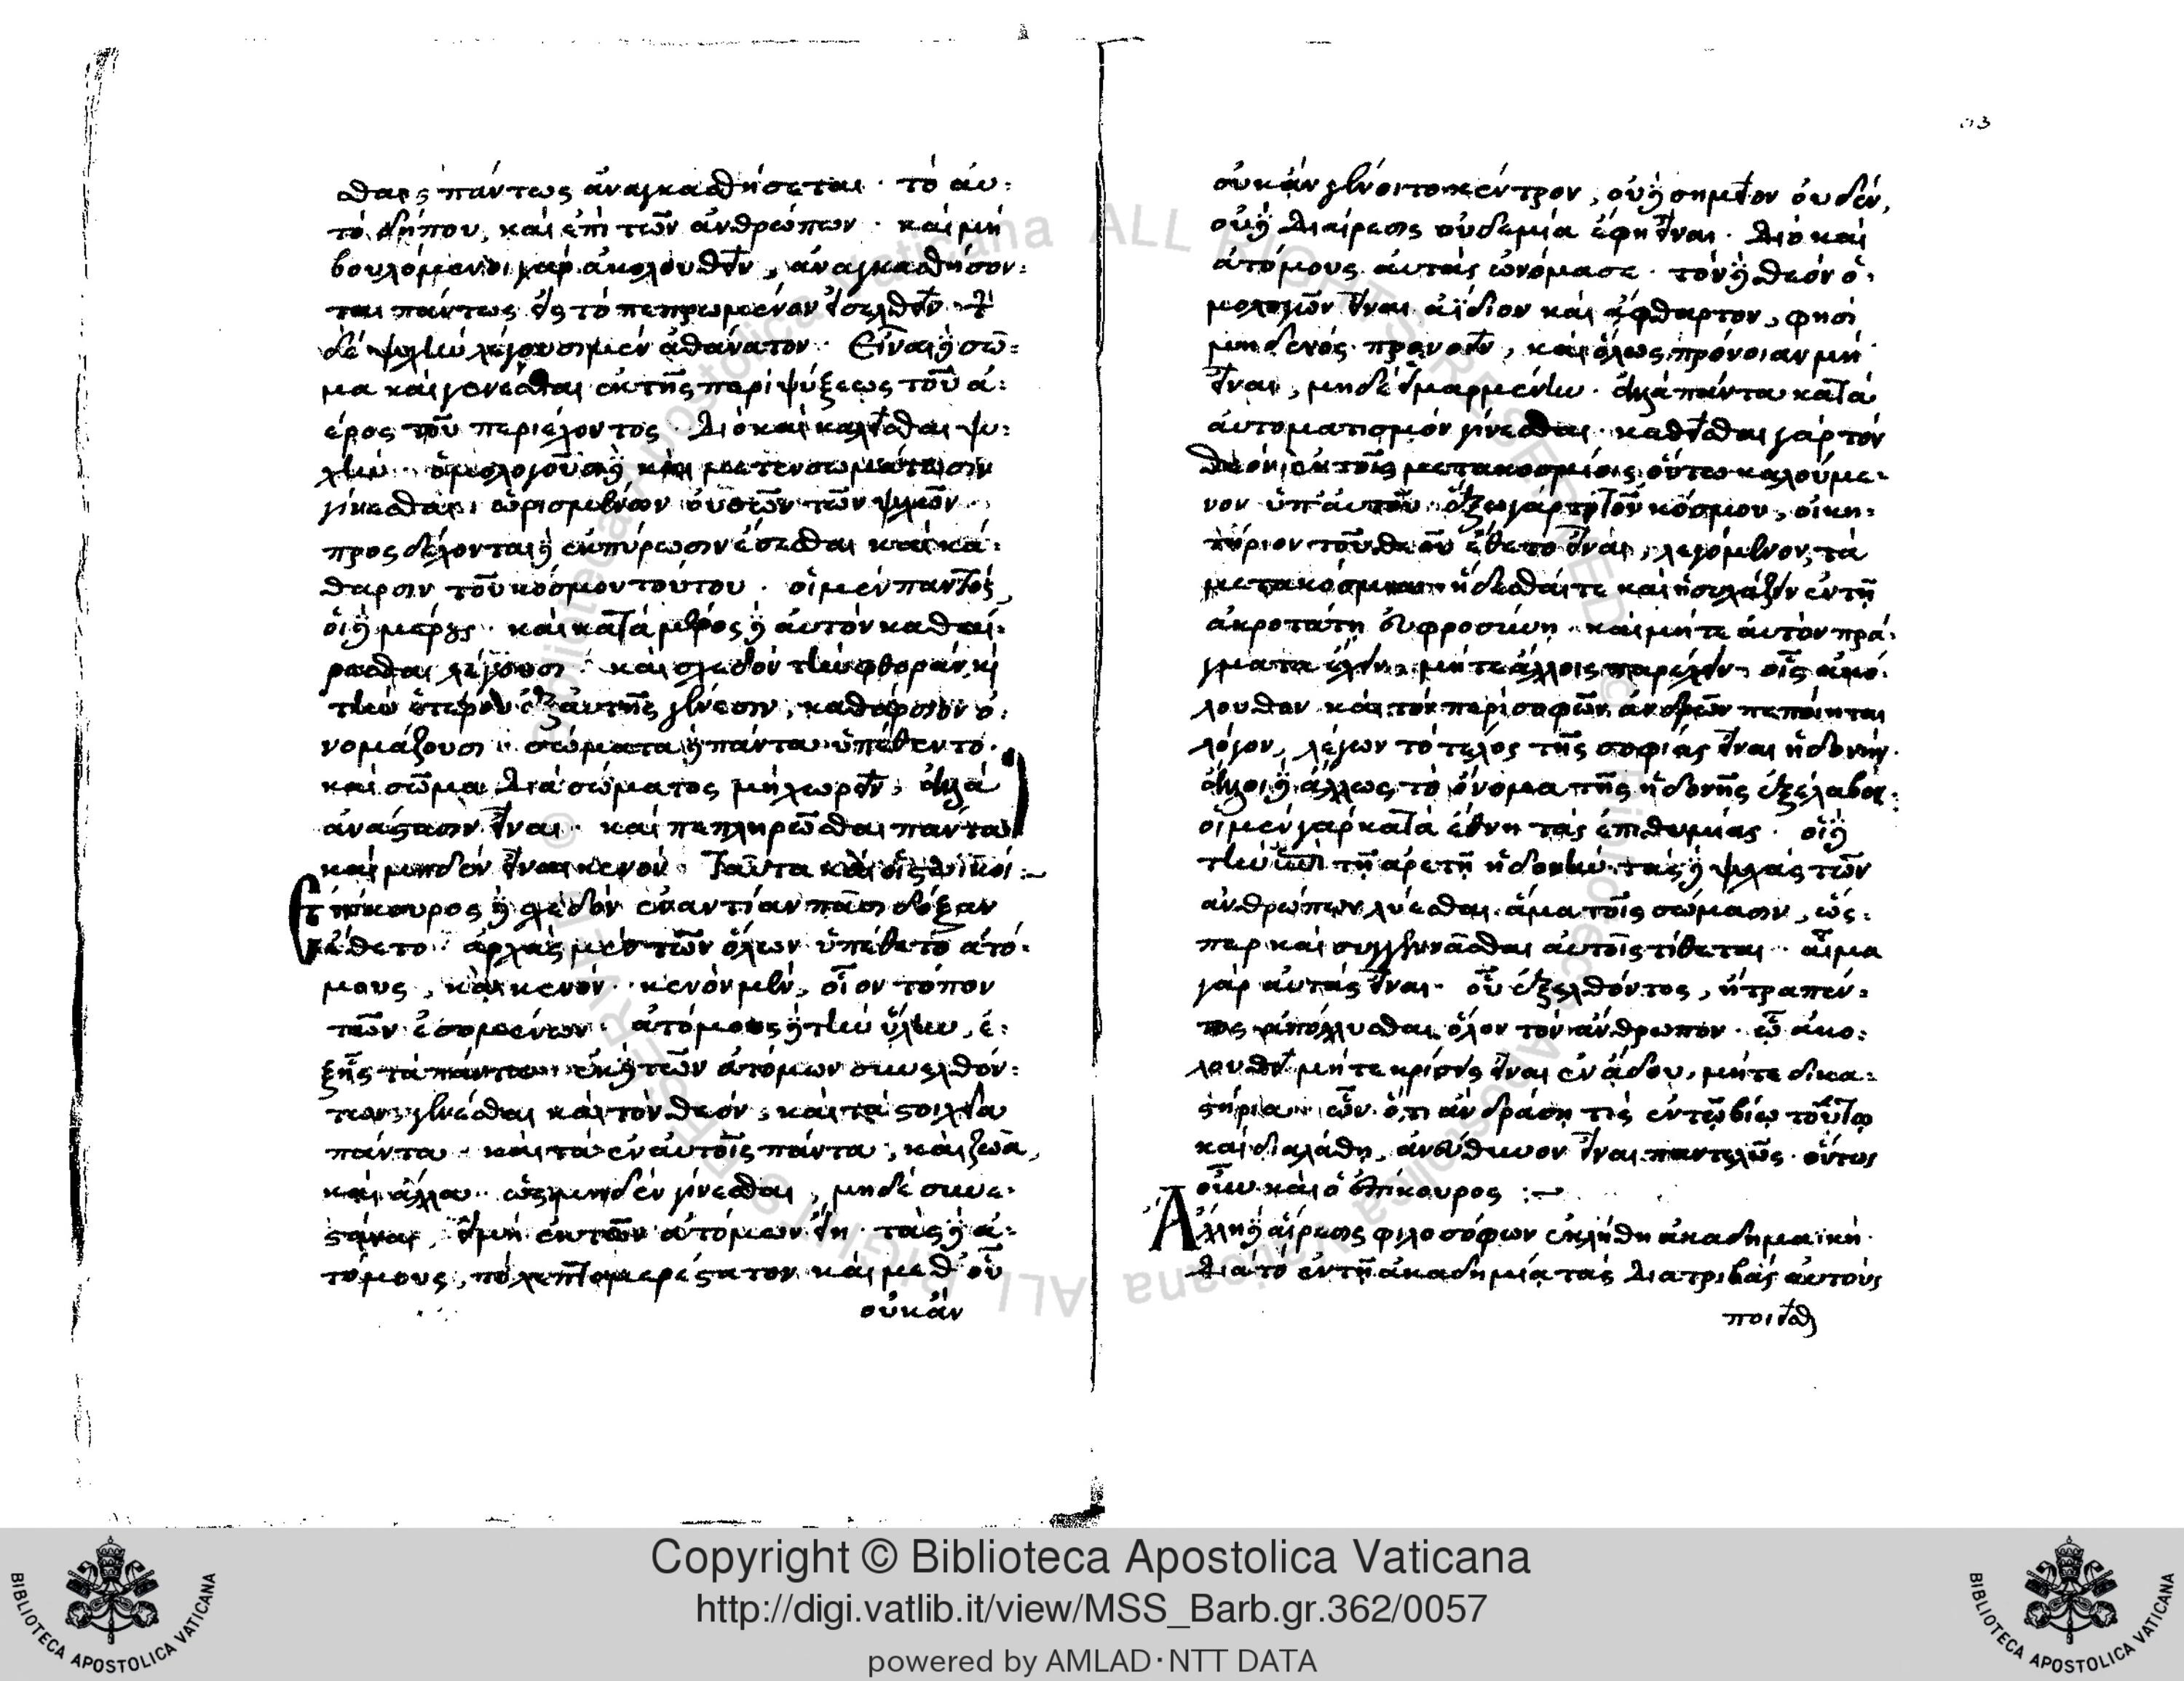 θαις πάντως ἀναγκασθήσεται · τὸ αὐ:
τὸ δήπου, καὶ ἐπὶ τῶν ἀνθρώπων · καὶ μὴ
βουλόμενοι γὰρ ἀκολουθεῖν, ἀναγκασθήσον:
ται πάντως εἰς τὸ πεπρωμένον εἰσελθεῖν · τὴν
δὲ ψυχὴν λέγουσι μὲν ἀθάνατον · Εἶναι δὲ σῶ:
μα καὶ γενέσθαι ἐκ τῆς περιψύξεως τοῦ ἀ:
έρος τοῦ περιέχοντος · Διὸ καὶ καλεῖσθαι ψυ:
χὴν · ὁμολογοῦσι δὲ καὶ μετενσωμάτωσιν
γίνεσθαι ὡρισμένων οὐσῶν τῶν ψυχῶν ·
προσδέχονται δὲ ἐκπύρωσιν ἔσεσθαι καὶ κά:
θαρσιν τοῦ κόσμου τούτου · οἱ μὲν παντός,
οἱ δὲ μέρους · καὶ κατὰ μέρος δὲ αὐτὸν καθαί:
ρεσθαι λέγουσι · καὶ σχεδὸν τὴν φθορὰν κὶ
τὴν ἑτέρου ἐξ αὐτῆς γένεσιν, καθάρσιον ὀ:
νομάζουσι · σώματα δὲ πάντα ὑπέθεντο ·
καὶ σῶμα διὰ σώματος μὴ χωρεῖν, ἀλλὰ
ἀνάστασιν εἶναι · καὶ πεπληρῶσθαι πάντα
καὶ μηδὲν εἶναι κενόν · Ταῦτα καὶ οἱ στωϊκοί :~
Ἐπίκουρος δὲ σχεδὸν ἐναντίαν πᾶσι δόξαν
ἔθετο · ἀρχὰς μὲν τῶν ὅλων ὑπέθετο ἀτό:
μους, καὶ κενόν · κενὸν μὲν, οἷον τόπον
τῶν ἐσομένων · ἀτόμους δὲ τὴν ὕλην, ἐ:
ξῆς τὰ πάντα · ἐκ δὲ τῶν ἀτόμων συνελθόν:
των γενέσθαι καὶ τὸν θεόν, καὶ τὰ στοιχεῖα
πάντα · καὶ τὰ ἐν αὐτοῖς πάντα, καὶ ζῶα,
καὶ ἄλλα · ὡς μηδὲν γίνεσθαι, μηδὲ συνε:
στάναι, εἰ μὴ ἐκ τῶν ἀτόμων εἴη · τὰς δὲ ἀ:
τόμους, τὸ λεπτομερέστατον καὶ μεθ' οὗ
οὐκ ἂν
οὐκ ἂν γένοιτο κέντρον, οὐδὲ σημεῖον οὐδὲν,
οὐδὲ διαίρεσις οὐδεμία ἔφη εἶναι · Διὸ καὶ
ἀτόμους αὐτὰς ὠνόμασε · τὸν δὲ θεὸν ὁ:
μολογῶν εἶναι ἀΐδιον καὶ ἄφθαρτον, φησὶ
μηδενὸς προνοεῖν, καὶ ὅλως πρόνοιαν μὴ
εἶναι, μηδὲ εἱμαρμένην · ἀλλὰ πάντα κατὰ
αὐτοματισμὸν γίνεσθαι · καθεῖσθαι γὰρ τὸν
θεὸν ἐν τοῖς μετακοσμίοις οὕτω καλούμε:
νον ὑπ' αὐτοῦ · ἔξω γάρ τι τοῦ κόσμου, οἰκη:
τήριον τοῦ θεοῦ ἔθετο εἶναι, λεγόμενον, τὰ
μετακόσμια · ἥδεσθαί τε καὶ ἡσυχάζειν ἐν τῇ
ἀκροτάτῃ εὐφροσύνῃ · καὶ μήτε αὐτὸν πρά:
γματα ἔχειν, μήτε ἄλλοις παρέχειν · οἷς ἀκό:
λουθον καὶ τὸν περὶ σοφῶν ἀνδρῶν πεποίηται
λόγον, λέγων τὸ τέλος τῆς σοφίας εἶναι ἡδονήν ·
ἄλλοι δὲ ἄλλως τὸ ὄνομα τῆς ἡδονῆς ἐξέλαβον:
οἱ μὲν γὰρ κατὰ ἔθνη τὰς ἐπιθυμίας · οἱ δὲ
τὴν ἐπὶ τῇ ἀρετῇ ἡδονὴν · τὰς δὲ ψυχὰς τῶν
ἀνθρώπων λύεσθαι ἅμα τοῖς σώμασιν, ὥς:
περ καὶ συγγεννᾶσθαι αὐτοῖς τίθεται · αἷμα
γὰρ αὐτὰς εἶναι · οὗ ἐξελθόντος, ἢ τραπέν:
τος ἀπόλλυσθαι ὅλον τὸν ἄνθρωπον · ᾧ ἀκο:
λουθεῖ μήτε κρίσεις εἶναι ἐν ᾅδου, μήτε δικα:
στήρια · ὧν ὅ,τι ἂν δράσῃ τὶς ἐν τῷ βίῳ τούτῳ
καὶ διαλάθῃ, ἀνεύθυνον εἶναι παντελῶς · οὕτως
οὖν καὶ ὁ Ἐπίκουρος :~
Ἄλλη δὲ αἵρεσις φιλοσόφων ἐκλήθη ἀκαδημαϊκὴ ·
διὰ τὸ ἐν τῇ ἀκαδημίᾳ τὰς διατριβὰς αὐτοὺς
ποιεῖσθ
Copyright © Biblioteca Apostolica Vaticana
http://digi.vatlib.it/view/MSS_Barb.gr.362/0057
powered by AMLAD·NTT DATA
BIBLIOTECA APOSTOLICA VATICANA
BIBLIOTECA APOSTOLICA VATICANA